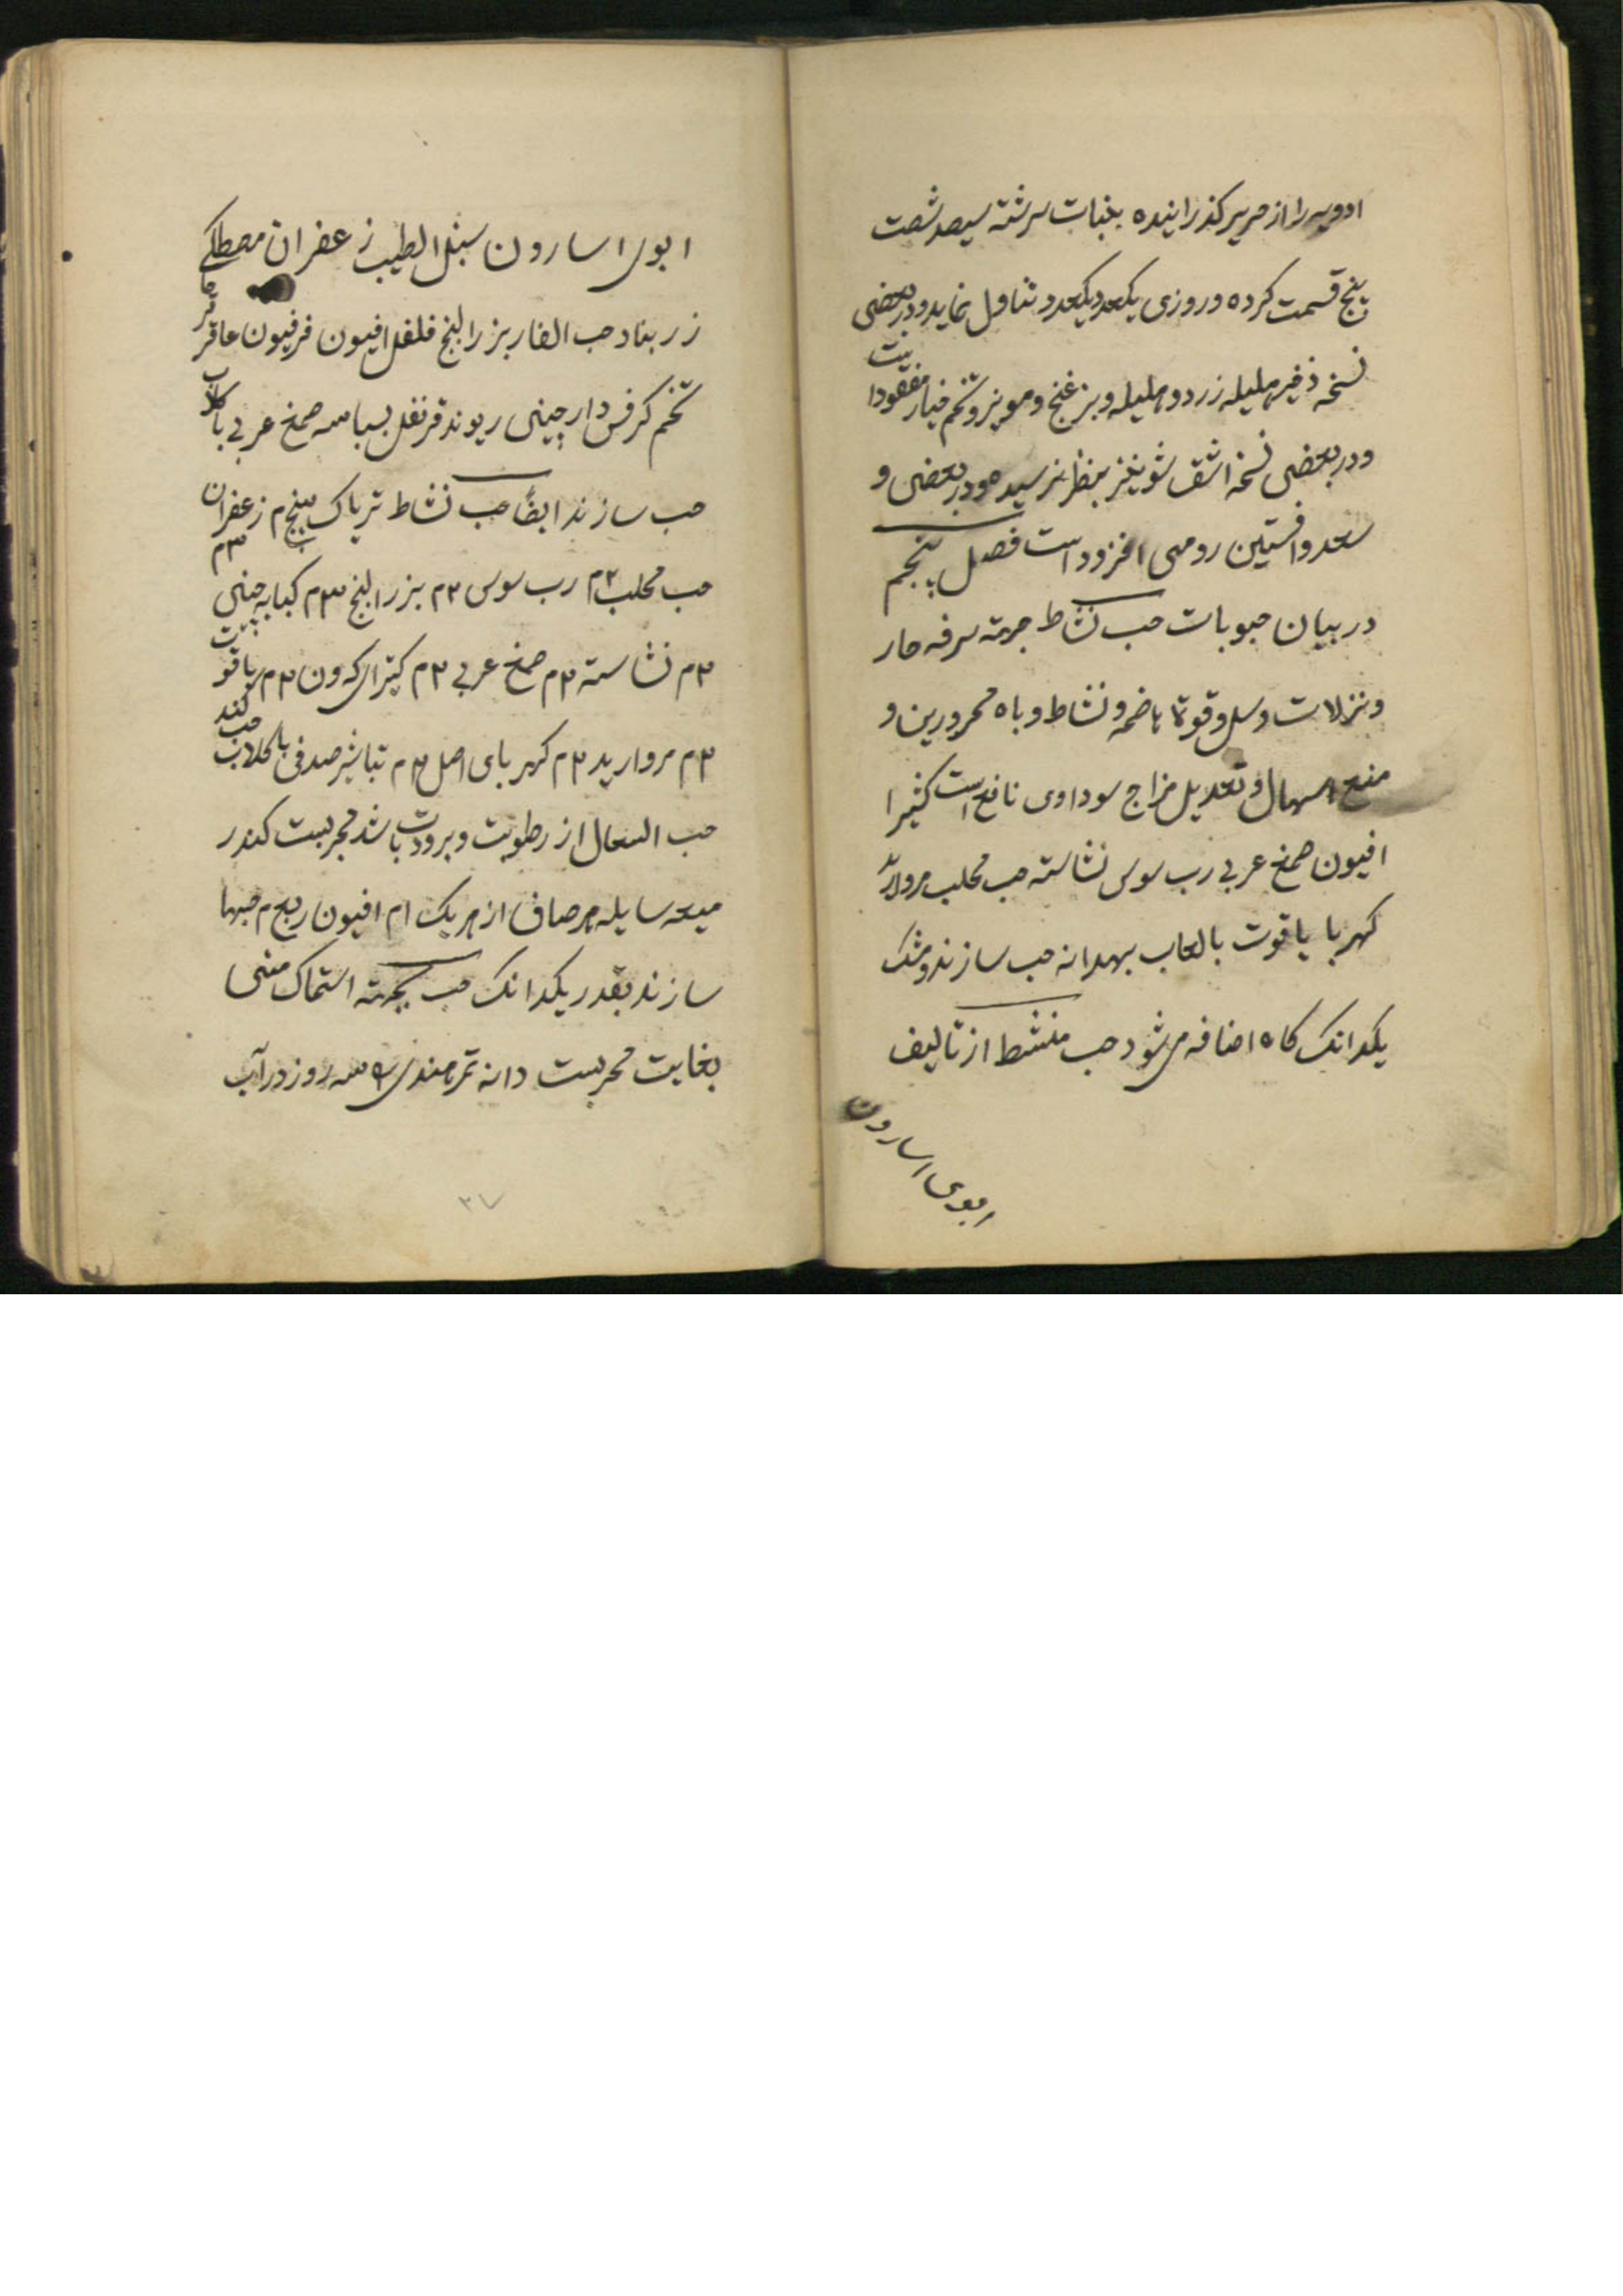 ادویه را از حریر کذرانیده بنبات سرشته سیصد شصت
پنج قسمت کرده و روزی یکعدد یکعدد تناول نماید و در بعضی
نسخه ذفیر هلیله زرد و هلیله و بزغنج و مویز و تخم خیار مفقود است
و در بعضی نسخه اشق شونیز بنظر نرسیده و در بعضی و
سعد و افسنتین رومی افزوده است فصل پنجم
در بیان حبوبات حب نشاط جهة سرفه حار
و نزلات و سل و قوة هاضمه و نشاط و باه محرورین و
منع اسهال و تعدیل مزاج سوداوی نافع است کثیرا
افیون صمغ عربی رب سوس نشاسته حب محلب مروارید
کهربا یاقوت بالعاب بهدانه حب سازند و مشک
یکدانک کاه اضافه می شود حب منشط از تالیف
ابوی اسارون
ابوی اسارون سنبل الطیب زعفران مصطکی
زرنباد حب الغار بزرالبنج فلفل افیون فرفیون عاقرقرحا
تخم کرفس دارچینی ریوند قرنفل بسباسه صمغ عربی با کلاب
حب سازند ایضا حب نشاط تریاک پنج م زعفران ۳م
حب محلب ۲م رب سوس ۲م بزرالبنج ۳م کبابه چینی
۲م نشاسته ۲م صمغ عربی ۲م کتیرای که ون ۲م یاقوت
۲م مروارید ۲م کهربای اصل ۲م تباشیر صدفی با کلاب حب کند
حب السعال از رطوبت و برودت باشد مجربست کندر
میعه سایله مرصاف از هریک ۱م افیون ربع م حبها
سازند بقدر یکدانک حب بجهته استماک منی
بغایت مجربست دانه تمرهندی سه روز در آب
۳۷